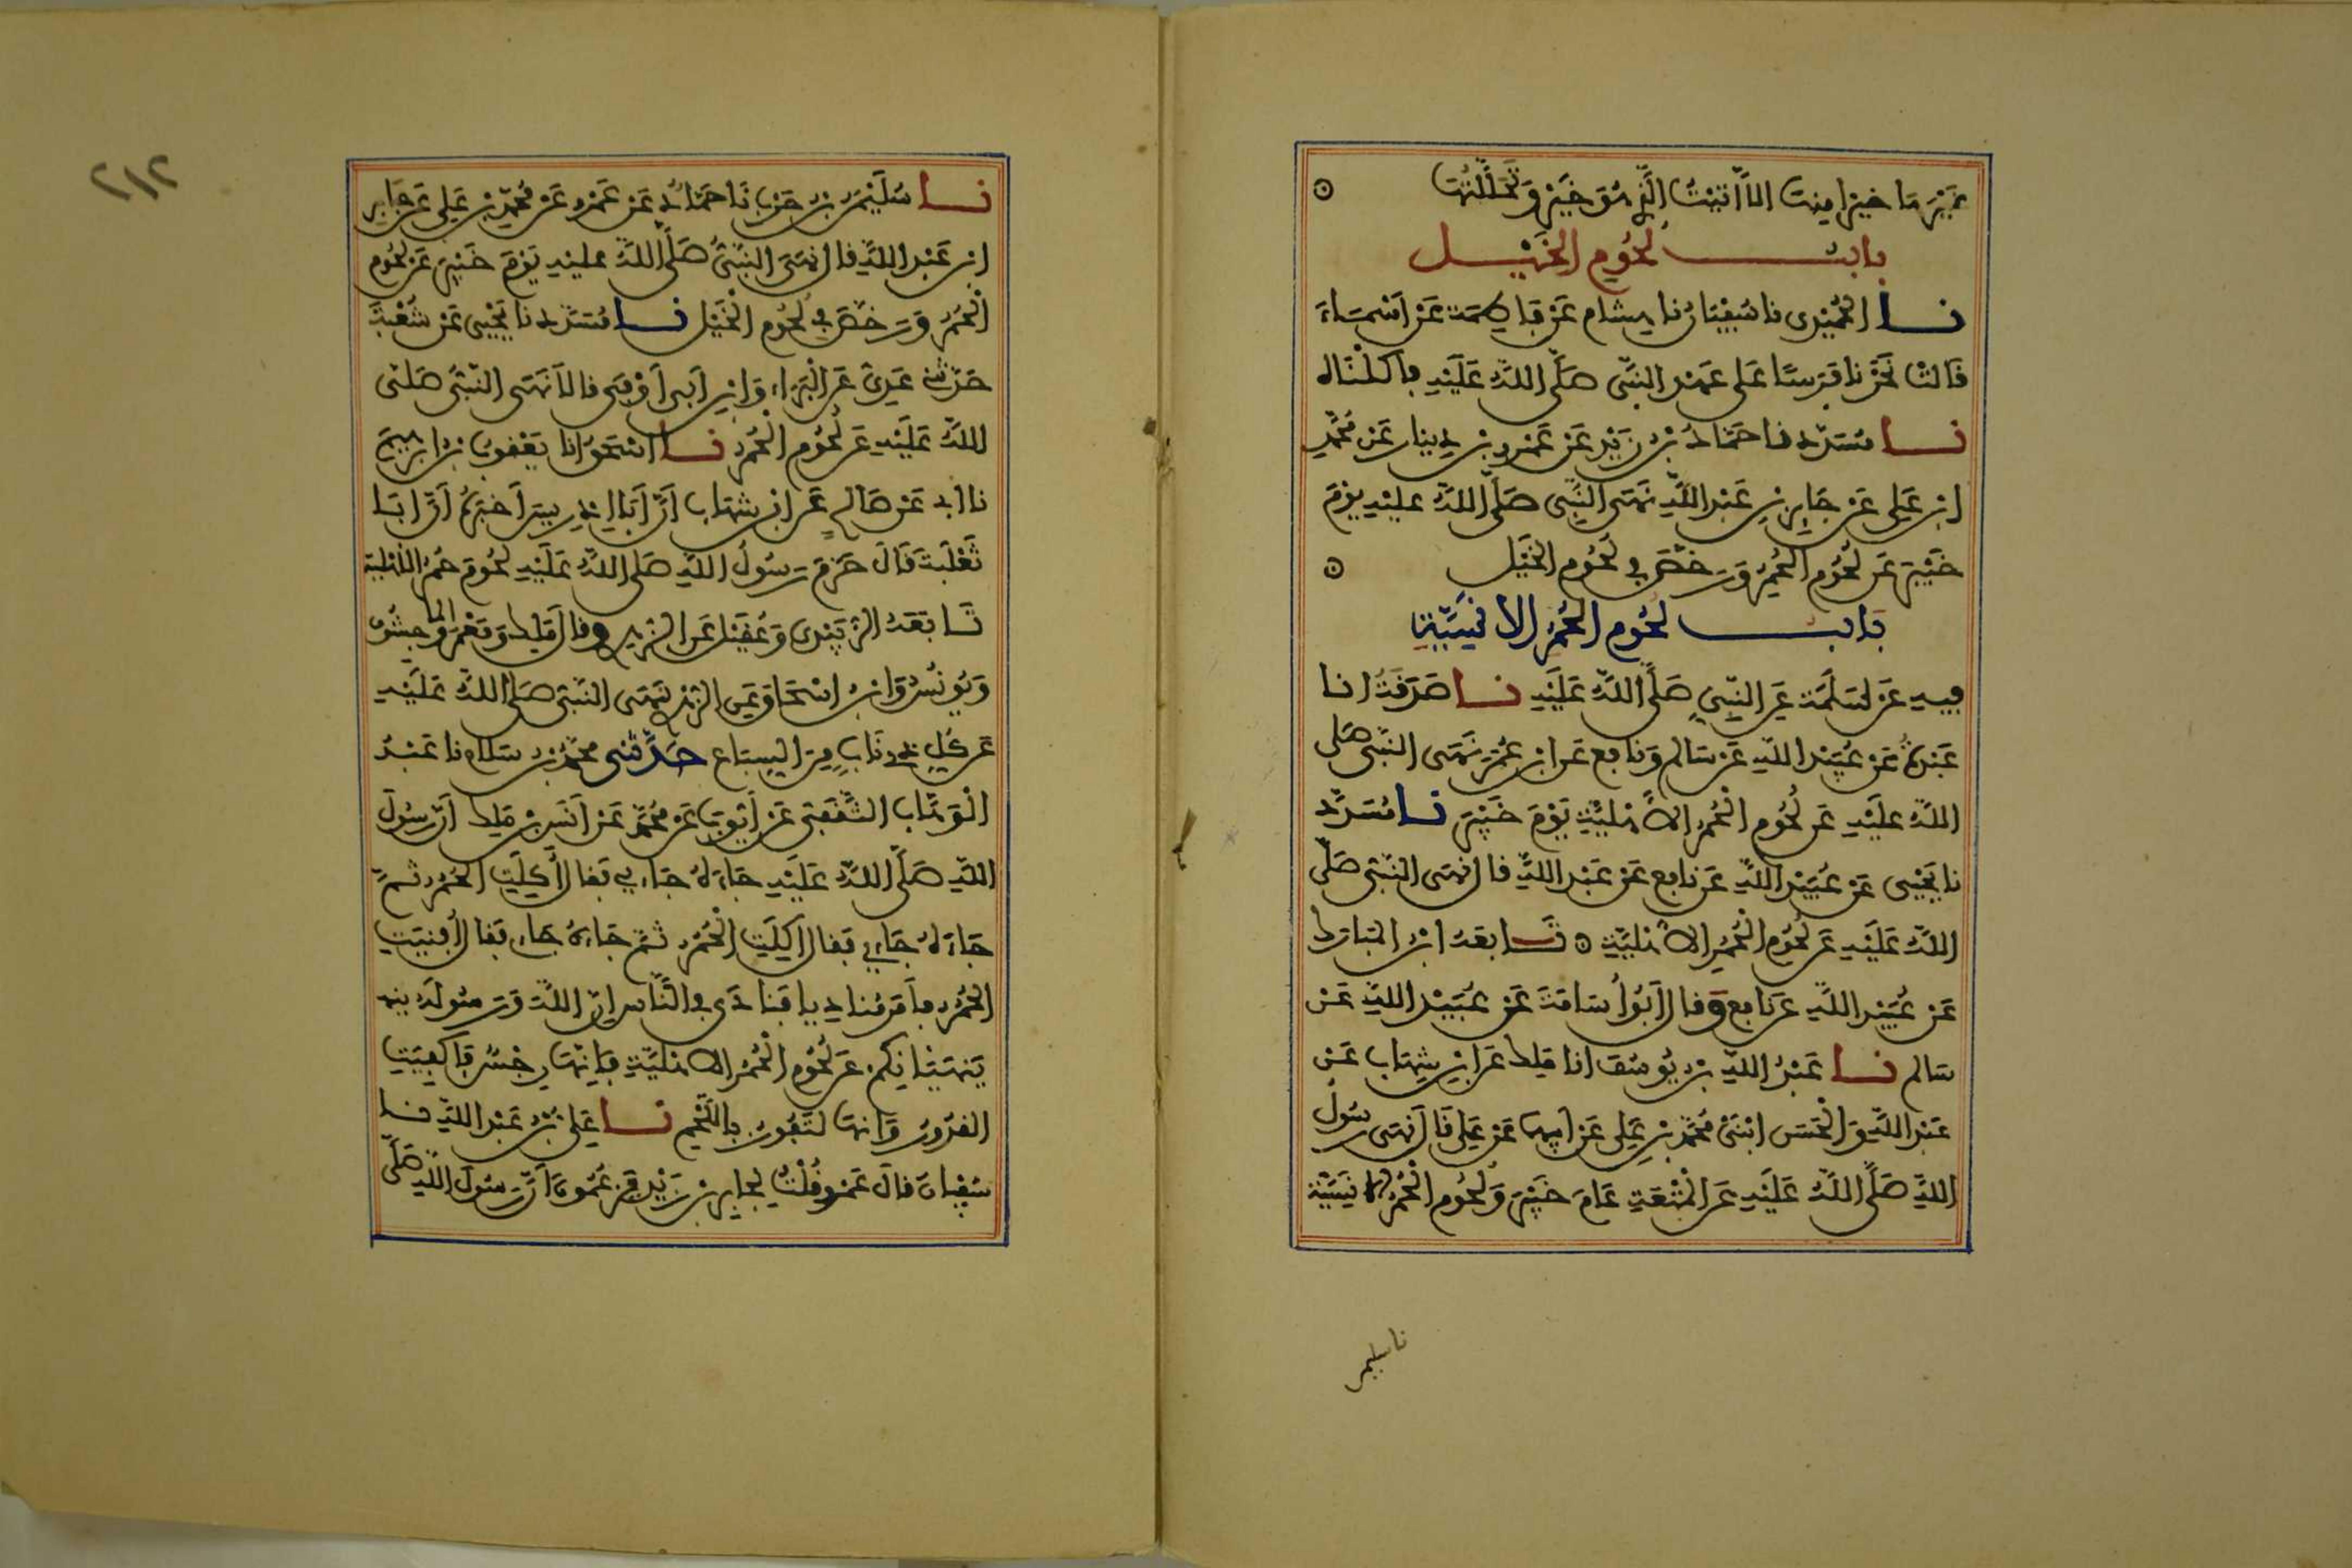 غيرها خيرا منها الا اتيت الذي هو خير وتحللتها
باب لحوم الخيل
نا الحميدي نا سفيان نا هشام عن فاطمة عن اسماء
قالت نحرنا فرسا على عهد النبي صلى الله عليه فاكلناه
نا مسدد نا حماد بن زيد عن عمرو بن دينار عن محمد
ابن علي عن جابر بن عبد الله نهى النبي صلى الله عليه يوم
خيبر عن لحوم الحمر ورخص في لحوم الخيل
باب لحوم الحمر الانسية
فيه عن سلمة عن النبي صلى الله عليه نا صدقة انا
عبدة عن عبيد الله عن سالم ونافع عن ابن عمر نهى النبي صلى
الله عليه عن لحوم الحمر الاهلية يوم خيبر نا مسدد
نا يحيى عن عبيد الله عن نافع عن عبد الله قال نهى النبي صلى
الله عليه عن لحوم الحمر الاهلية تابعه ابن المبارك
عن عبيد الله عن نافع وقال ابو اسامة عن عبيد الله عن
سالم نا عبد الله بن يوسف انا ملك عن ابن شهاب عن
عبد الله والحسن ابني محمد بن علي عن ابيهما عن علي قال نهى رسول
الله صلى الله عليه عن المتعة عام خيبر ولحوم الحمر الانسية
نا سليمن
نا سليمن بن حرب نا حماد عن عمرو عن محمد بن علي عن جابر
ابن عبد الله قال نهى النبي صلى الله عليه يوم خيبر عن لحوم
الحمر ورخص في لحوم الخيل نا مسدد نا يحيى عن شعبة
حدثني عدي عن البراء وابن ابي اوفى قالا نهى النبي صلى
الله عليه عن لحوم الحمر نا اسحق انا يعقوب بن ابرهيم
نا ابي عن صالح عن ابن شهاب ان ابا ادريس اخبره ان ابا
ثعلبة قال حرم رسول الله صلى الله عليه لحوم حمر الاهلية
تابعه الزبيدي وعقيل عن الزهري وقال ملك ومعمر والماجشون
ويونس وابن اسحاق عن الزهري نهى النبي صلى الله عليه
عن كل ذي ناب من السباع حدثني محمد بن سلام نا عبد
الوهاب الثقفي عن ايوب عن محمد عن انس بن ملك ان رسول
الله صلى الله عليه جاءه جاء فقال اكلت الحمر ثم
جاءه جاء فقال اكلت الحمر ثم جاءه جاء فقال افنيت
الحمر فامر مناديا فنادى في الناس ان الله ورسوله
ينهيانكم عن لحوم الحمر الاهلية فانها رجس فاكفيت
القدور وانها لتفور باللحم نا علي بن عبد الله نا
سفيان قال عمرو قلت لجابر بن زيد يزعمون ان رسول الله صلى
٢١٢